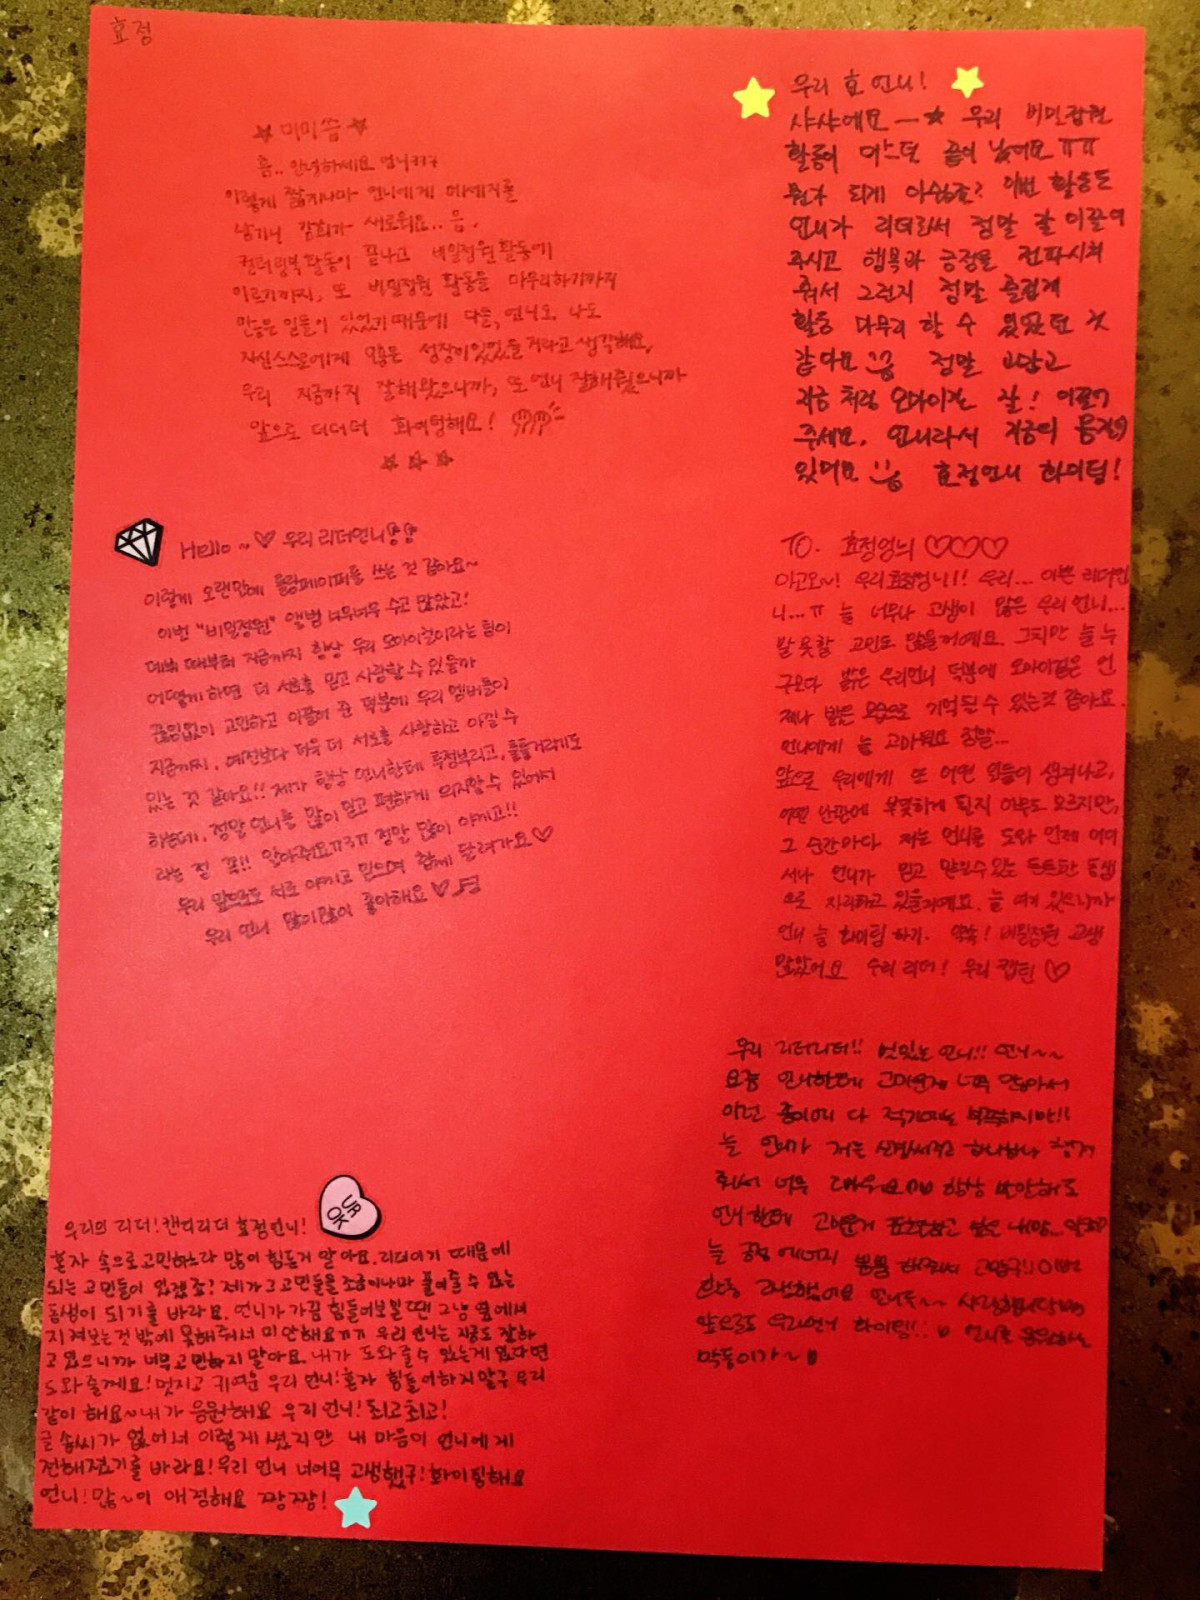 효정
☆미미쓰☆
흠.. 안녕하세요 언니ㅋㅋㅋ
이렇게 짧지나마 언니에게 메세지를
남기니 감회가 새로워요.. 음.
컬러링북 활동이 끝나고 비밀정원 활동에
이르기까지, 또 비밀정원 활동을 마무리하기까지
많은 일들이 있었기 때문에 다들, 언니도, 나도
자신스스로에게 많은 성장이있었을거라고 생각해요.
우리 지금까지 잘해왔으니까, 또 언니 잘해줬으니까
앞으로 더더더 화이팅해요!
☆☆☆
Hello~♡ 우리 리더언니
이렇게 오랜만에 롤링페이퍼를 쓰는 것 같아요~
이번 "비밀정원" 앨범 너무너무 수고 많았고!
데뷔 때부터 지금까지 항상 우리 오마이걸이라는 팀이
어떻게 하면 더 서로를 믿고 사랑할 수 있을까
끊임없이 고민하고 이끌어 준 덕분에 우리 멤버들이
지금까지, 예전보다 더욱 더 서로를 사랑하고 아낄 수
있는 것 같아요!! 제가 항상 언니한테 투정부리고, 툴툴거리기도
하는데, 정말 언니를 많이 믿고 편하게 의지할 수 있어서
라는 걸 꼭!! 알아줘요ㅠㅠ 정말 많이 아끼고!!
우리 앞으로도 서로 아끼고 믿으며 함께 달려가요♡
우리 언니 많이많이 좋아해요♡
우리의 리더! 캔디리더 효정언니!
UR OK
혼자 속으로 고민하느라 많이 힘든거 알아요. 리더이기 때문에
되는 고민들이 있겠죠? 제가 그 고민들을 조금이나마 풀어줄 수 있는
동생이 되기를 바라요. 언니가 가끔 힘들어보일 땐 그냥 옆에서
지켜보는것 밖에 못해줘서 미안해요ㅠㅠ 우리 언니는 지금도 잘하
고 있으니까 너무 고민하지 말아요. 내가 도와줄수 있는게 있다면
도와줄께요! 멋지고 귀여운 우리 언니! 혼자 힘들어하지말구 우리
같이 해요~ 내가 응원해요 우리언니! 최고최고!
글솜씨가 없어서 이렇게 썼지만 내 마음이 언니에게
전해졌기를 바라요! 우리 언니 너어무 고생했구! 화이팅해요
언니! 많~이 애정해요 짱짱!
우리 효 언니!
샤샤에요 —☆ 우리 비밀정원
활동이 어느덧 끝이 났어요 ㅠㅠ
뭔가 되게 아쉽죠? 이번 활동도
언니가 리더라서 정말 잘 이끌어
주시고 행복과 긍정을 전파시켜
줘서 그런지 정말 즐겁게
활동 마무리 할 수 있었던 것
같아요 정말 고맙고
지금 처럼 오마이걸 잘! 이끌어
주세요. 언니라서 지금의 몽이
있어요 효정언니 화이팅!
TO. 효정엉늬 ♡♡♡
아고오~! 우리효정엉니!! 우리... 이쁜 리더언
니...ㅠ 늘 너무나 고생이 많은 우리 언니...
말 못할 고민도 많을꺼예요. 그치만 늘 누
구보다 밝은 우리언니 덕분에 오마이걸은 언
제나 밝은 모습으로 기억될 수 있는것 같아요.
언니에게 늘 고마워요 정말...
앞으로 우리에게 또 어떤 일들이 생겨나고,
어떤 난관에 부딪하게 될지 아무도 모르지만,
그 순간마다 저는 언니를 도와 언제 어디
서나 언니가 믿고 맡길수있는 든든한 동생
으로 자리하고 있을거예요. 늘 여기 있으니까
언니 늘 화이팅 하기. 약속! 비밀정원 고생
많았어요 우리 리더! 우리 캡틴 ♡
우리 리더리더!! 멋있는 언니!! 언니~~
요즘 언니한테 고마운게 너무 많아서
이런 종이에 다 적기에는 부족하지만!!
늘 언니가 저는 신경써주고 하나하나 챙겨
줘서 너무 고마워요 항상 미안해도
언니한테 고마운거 표현하고 싶은 내맘...
늘 긍정 에너지 뿜뿜 해줘서 고맙구!! 이번
활동 고생했어요 언니두~~ 사랑합니다
앞으로도 우리언니 화이팅!! 언니를 응원하는
막둥이가~